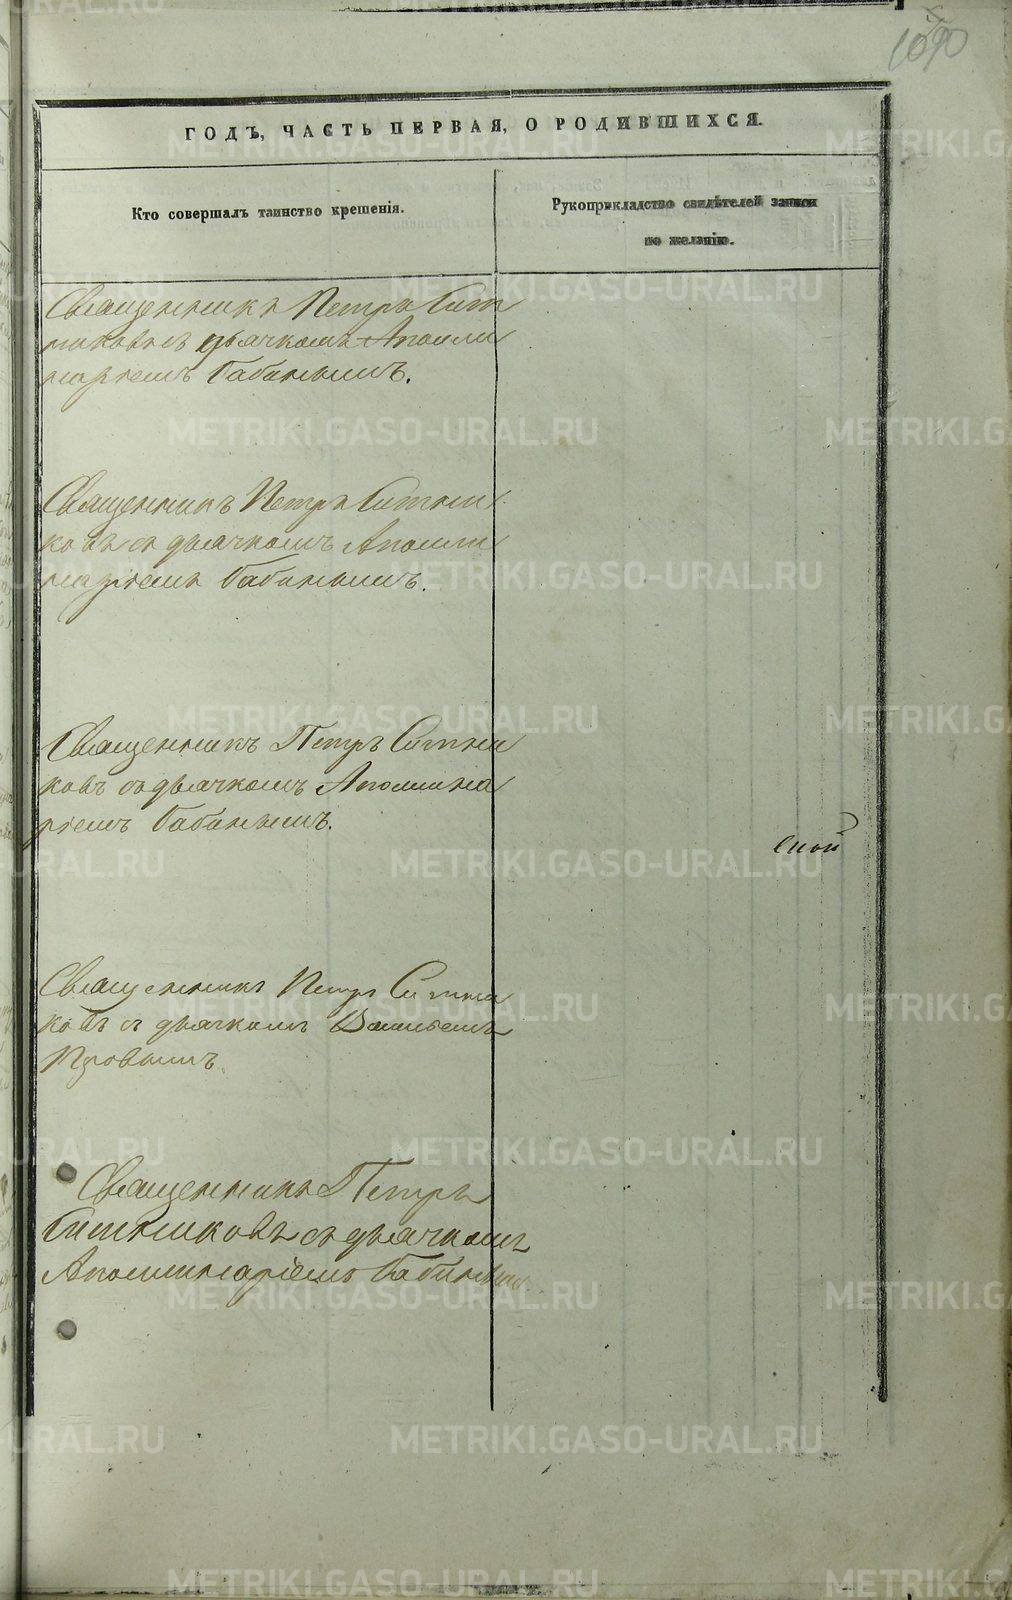 1090
ГОДЪ, ЧАСТЬ ПЕРВАЯ, О РОДИВШИХСЯ.
Кто совершалъ таинство крещенія.
Рукоприкладство свидѣтелей записи
по желанію.
Священникъ Петръ Сит
никовъ съ дьячкомъ Аполли
наріемъ Бабинымъ.
Священникъ Петръ Ситни
ковъ съ дьячкомъ Аполли
наріемъ Бабинымъ.
Священникъ Петръ Ситни
ковъ съ дьячкомъ Аполлина
ріемъ Бабинымъ.
ской
Священникъ Петръ Ситни
ковъ съ дьячкомъ Васильемъ
Священникъ Петръ
Ситниковъ съ дьячкомъ
Аполлинаріемъ Бабинымъ
METRIKI.GASO-URAL.RU